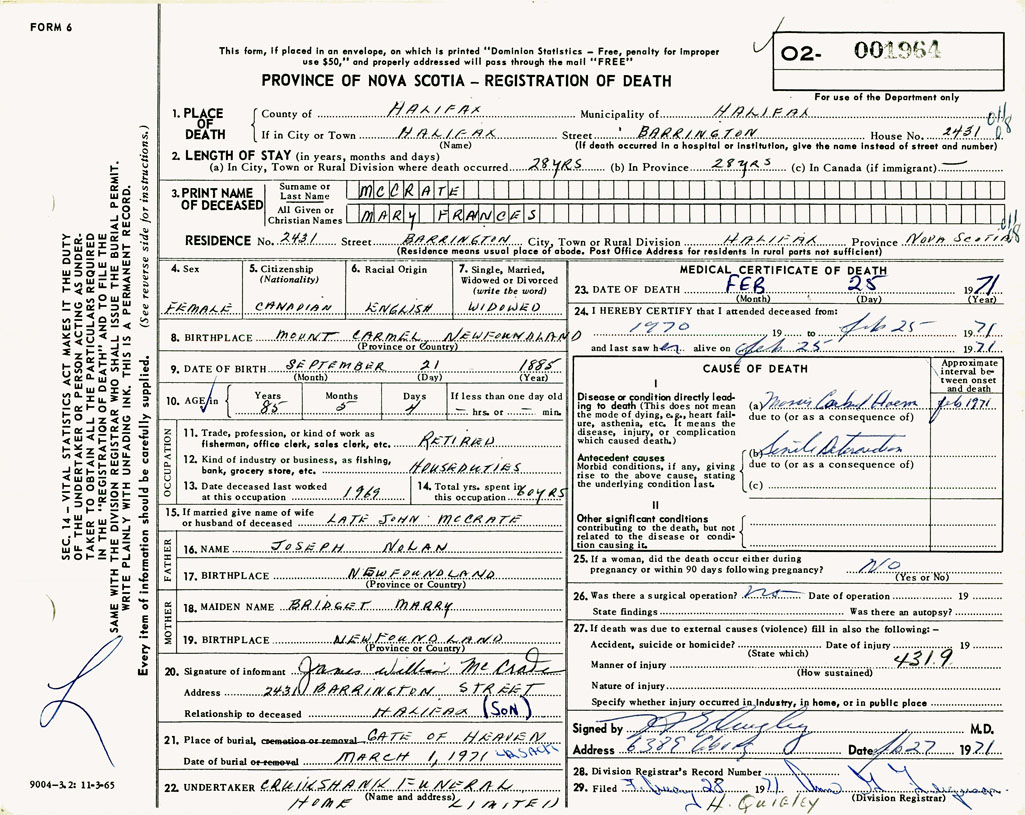 FORM 6
This form, if placed in an envelope, on which is printed "Dominion Statistics – Free, penalty for improper
use $50," and properly addressed will pass through the mail "FREE"
PROVINCE OF NOVA SCOTIA – REGISTRATION OF DEATH
O2- 001964
For use of the Department only
SEC. 14 – VITAL STATISTICS ACT MAKES IT THE DUTY
OF THE UNDERTAKER OR PERSON ACTING AS UNDER-
TAKER TO OBTAIN ALL THE PARTICULARS REQUIRED
IN THE "REGISTRATION OF DEATH" AND TO FILE THE
SAME WITH THE DIVISION REGISTRAR WHO SHALL ISSUE THE BURIAL PERMIT.
WRITE PLAINLY WITH UNFADING INK. THIS IS A PERMANENT RECORD.
Every item of information should be carefully supplied. (See reverse side for instructions.)
1. PLACE OF DEATH County of HALIFAX Municipality of HALIFAX
If in City or Town HALIFAX Street BARRINGTON House No. 2431
(Name) (If death occurred in a hospital or institution, give the name instead of street and number)
2. LENGTH OF STAY (in years, months and days)
(a) In City, Town or Rural Division where death occurred 28 YRS (b) In Province 28 YRS (c) In Canada (if immigrant) —
3. PRINT NAME OF DECEASED Surname or Last Name MCCRATE
All Given or Christian Names MARY FRANCES
RESIDENCE No. 2431 Street BARRINGTON City, Town or Rural Division HALIFAX Province NOVA SCOTIA
(Residence means usual place of abode. Post Office Address for residents in rural parts not sufficient)
4. Sex FEMALE
5. Citizenship (Nationality) CANADIAN
6. Racial Origin ENGLISH
7. Single, Married, Widowed or Divorced (write the word) WIDOWED
8. BIRTHPLACE MOUNT CARMEL NEWFOUNDLAND
(Province or Country)
9. DATE OF BIRTH SEPTEMBER 21 1885
(Month) (Day) (Year)
10. AGE in Years 85 Months 5 Days 4 If less than one day — hrs. or — min.
OCCUPATION
11. Trade, profession, or kind of work as
fisherman, office clerk, sales clerk, etc. RETIRED
12. Kind of industry or business, as fishing,
bank, grocery store, etc. HOUSEDUTIES
13. Date deceased last worked
at this occupation 1969
14. Total yrs. spent in
this occupation 60 YRS
15. If married give name of wife
or husband of deceased LATE JOHN MCCRATE
FATHER
16. NAME JOSEPH NOLAN
17. BIRTHPLACE NEWFOUNDLAND
(Province or Country)
MOTHER
18. MAIDEN NAME BRIDGET MARRY
19. BIRTHPLACE NEWFOUNDLAND
(Province or Country)
20. Signature of informant James William McCrate
Address 2431 BARRINGTON STREET
Relationship to deceased HALIFAX (SON)
21. Place of burial, cremation or removal GATE OF HEAVEN
Date of burial or removal MARCH 1, 1971
22. UNDERTAKER CRUIKSHANK FUNERAL
(Name and address)
HOME LIMITED
MEDICAL CERTIFICATE OF DEATH
23. DATE OF DEATH FEB 25 1971
(Month) (Day) (Year)
24. I HEREBY CERTIFY that I attended deceased from:
1970 19 to Feb 25 1971
and last saw her alive on Feb 25 1971
CAUSE OF DEATH
Approximate interval between onset and death
I
Disease or condition directly lead-
ing to death (This does not mean
the mode of dying, e.g., heart fail-
ure, asthenia, etc. It means the
disease, injury, or complication
which caused death.)
(a) Feb 1971
due to (or as a consequence of)
Antecedent causes
Morbid conditions, if any, giving
rise to the above cause, stating
the underlying condition last.
(b) Senile
due to (or as a consequence of)
(c)
II
Other significant conditions
contributing to the death, but not
related to the disease or condi-
tion causing it.
25. If a woman, did the death occur either during
pregnancy or within 90 days following pregnancy? NO
(Yes or No)
26. Was there a surgical operation? no Date of operation 19
State findings Was there an autopsy?
27. If death was due to external causes (violence) fill in also the following: –
Accident, suicide or homicide? Date of injury 19
(State which) 431.9
Manner of injury
(How sustained)
Nature of injury
Specify whether injury occurred in Industry, in home, or in public place
Signed by M.D.
Address 6389 Date Feb 27 1971
28. Division Registrar's Record Number
29. Filed February 28 1971
(Division Registrar)
H. QUIGLEY
9004–3.2: 11-3-65